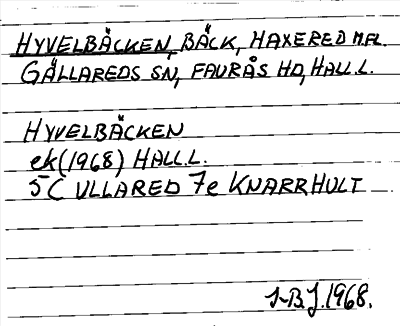 HYVELBÄCKEN, BÄCK, HAXERED M.FL.
GÄLLAREDS SN, FAURÅS HD, HALL.L.
HYVELBÄCKEN
ek(1968) HALL.L.
5C ULLARED 7e KNARRHULT
J-B.J.1968.